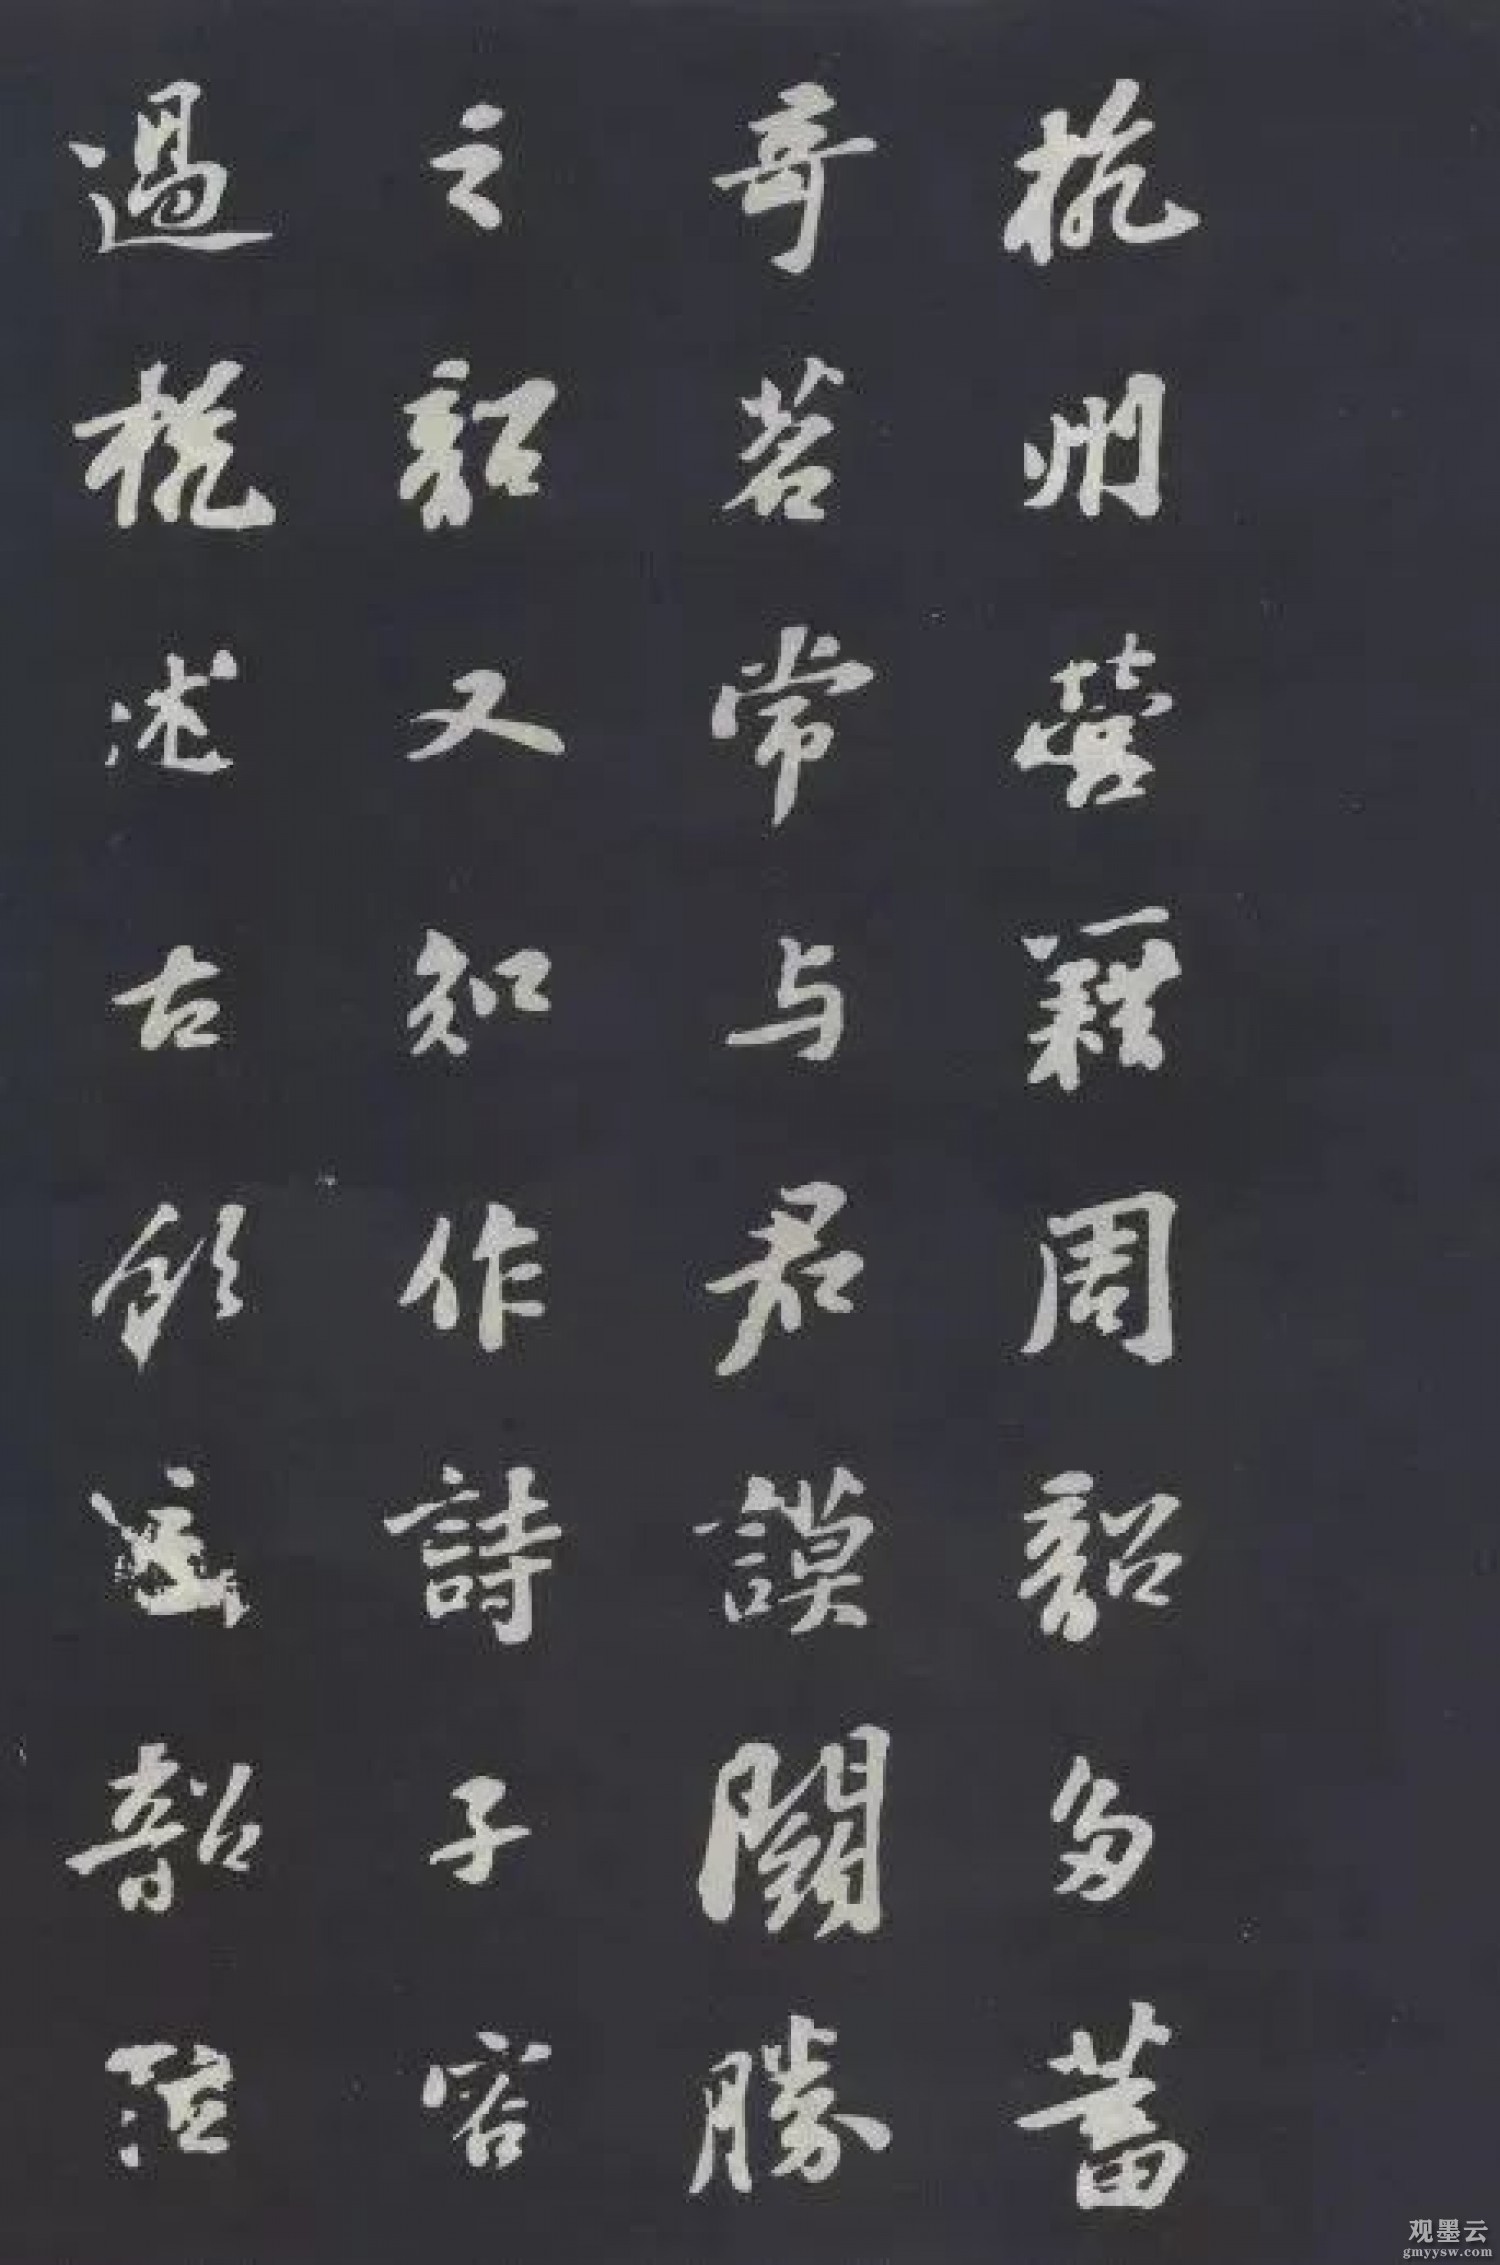 杭州營籍周韶多蓄
奇茗常与君謨鬭勝
之韶又知作詩子容
過杭述古飲之韶泣
观墨云
gmyysw.com